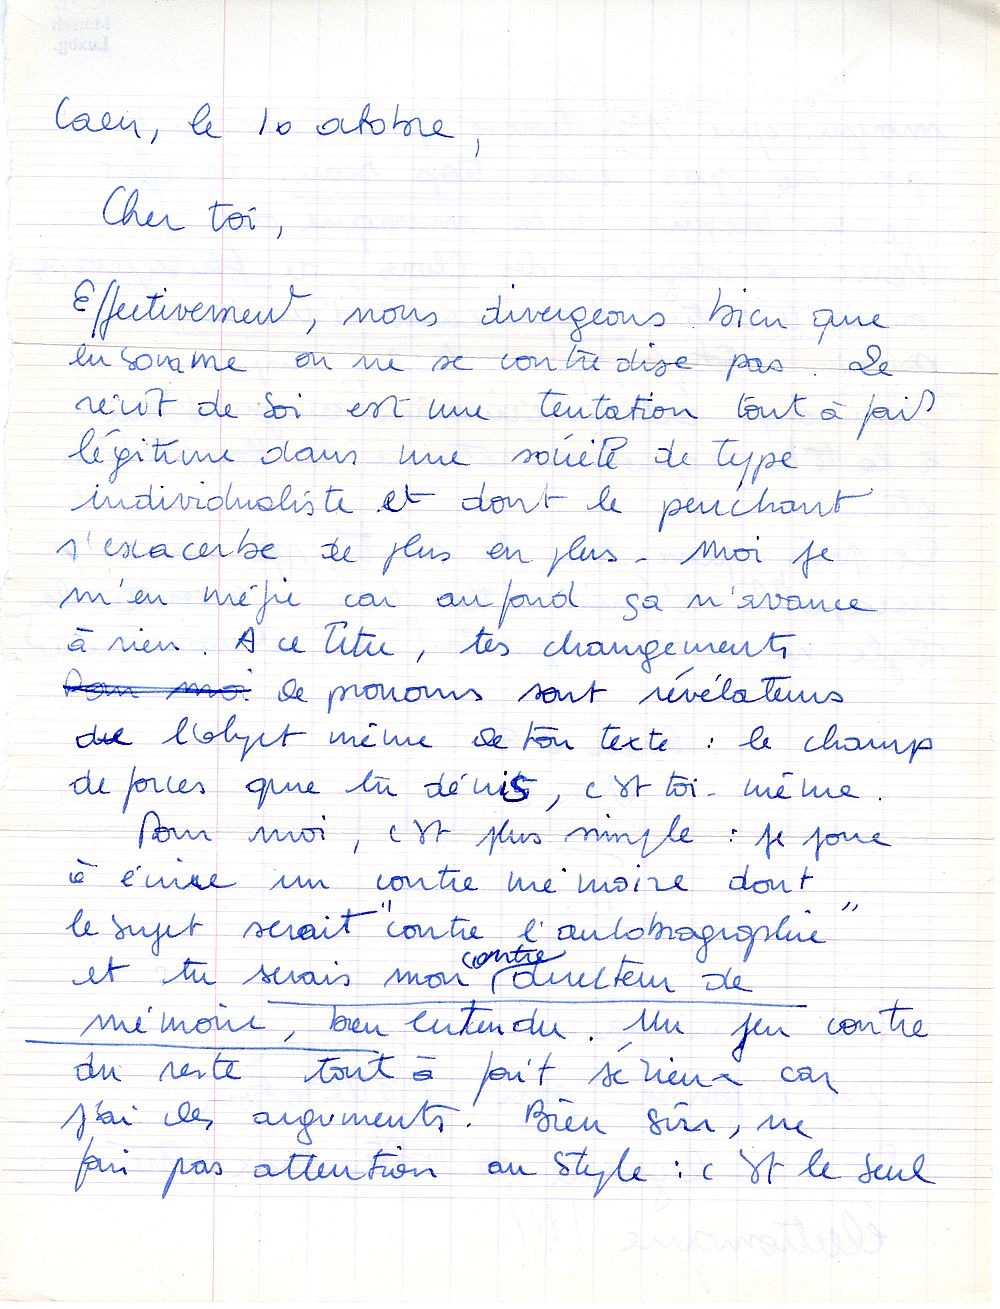 Caen, le 10 octobre,
Cher toi,
Effectivement, nous divergeons bien que
en somme on ne se contredise pas. Le
récit de soi est une tentation tout à fait
légitime dans une société de type
individualiste et dont le penchant
s'exacerbe de plus en plus. Moi je
m'en méfie car au fond ça n'avance
à rien. A ce titre, tes changements
Pour moi de pronoms sont révélateurs
de l'objet même de ton texte : le champ
de forces que tu décris, c'est toi-même.
Pour moi, c'est plus simple : je joue
à écrire un contre mémoire dont
le sujet serait "contre l'autobiographie"
et tu serais mon contre directeur de
mémoire, bien entendu. Un jeu contre
du reste tout à fait sérieux car
j'ai des arguments. Bien sûr, ne
fais pas attention au style : c'est le seul